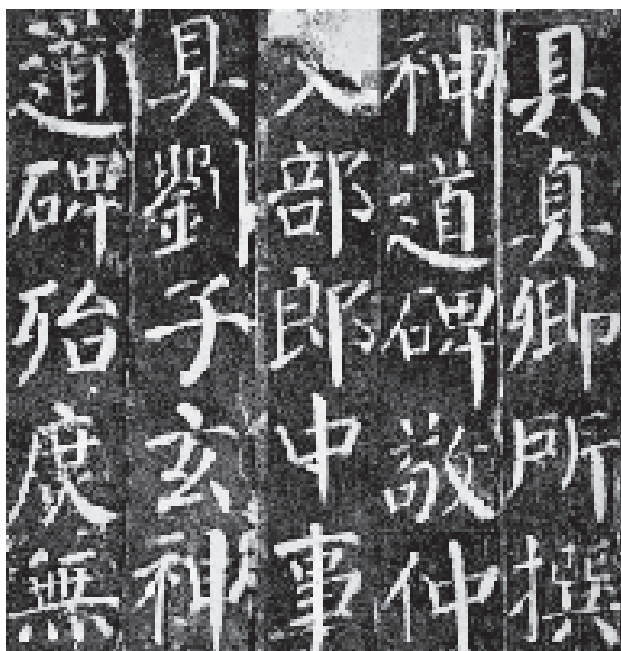 具真卿所撰
神道碑敬仲
部郎中事
具劉子玄神
道碑殆庶無